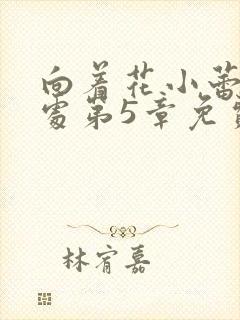 向着花小蕾
处第5章免
林宥嘉